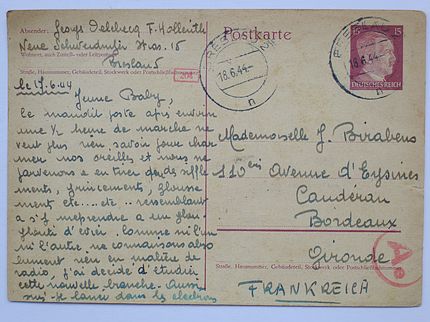 Absender: Georges Delcbecq F. Hollerith
Neue Schweidnitz Stras. 15
Wohnort, auch Zustell- oder Leitpostamt
Breslau 5
Straße, Hausnummer, Gebäudeteil, Stockwerk oder Postschließfachnummer
Postkarte
BRESLAU
18.6.44
n
BRESLAU
18.6.44
n
15
DEUTSCHES REICH
le 17.6.44
Jeune Baby,
ce maudit poste après environ
une 1/2 heure de marche ne
veut plus rien savoir pour char
mer nos oreilles et nous ne
parvenons à en tirer que des siffle
ments, grincements, glousse
ment etc... etc... ressemblant
à s'y méprendre à un
Comme ni l'un
ni l'autre ne connaissons abso
lument rien en matière de
radio, j'ai décidé d'étudier
cette nouvelle branche. Aussi
suis je lancé dans les électrons
Mademoiselle J. Birabens
110 bis Avenue d'Eysines
Caudéran
Bordeaux
Gironde
Straße, Hausnummer, Gebäudeteil, Stockwerk oder Postschließfachnummer
FRANKREICH
Ae